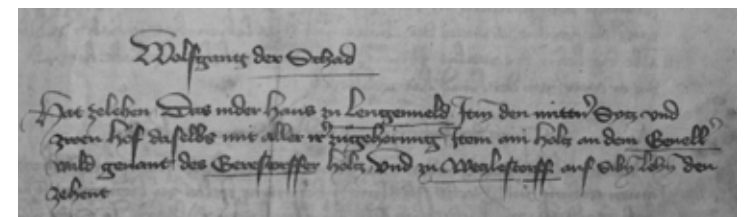 Wolfgang der Schad
Hat zelehen Das nider Haus zu Lengenueld Item den mittern Sytz und
zwen Höf daselbs mit aller irer zugehorung Item ain Holtz an dem Geuell
wald genant des Gerestorffer Holtz und zu Weczlestorff auf Siben lehen den
zehent